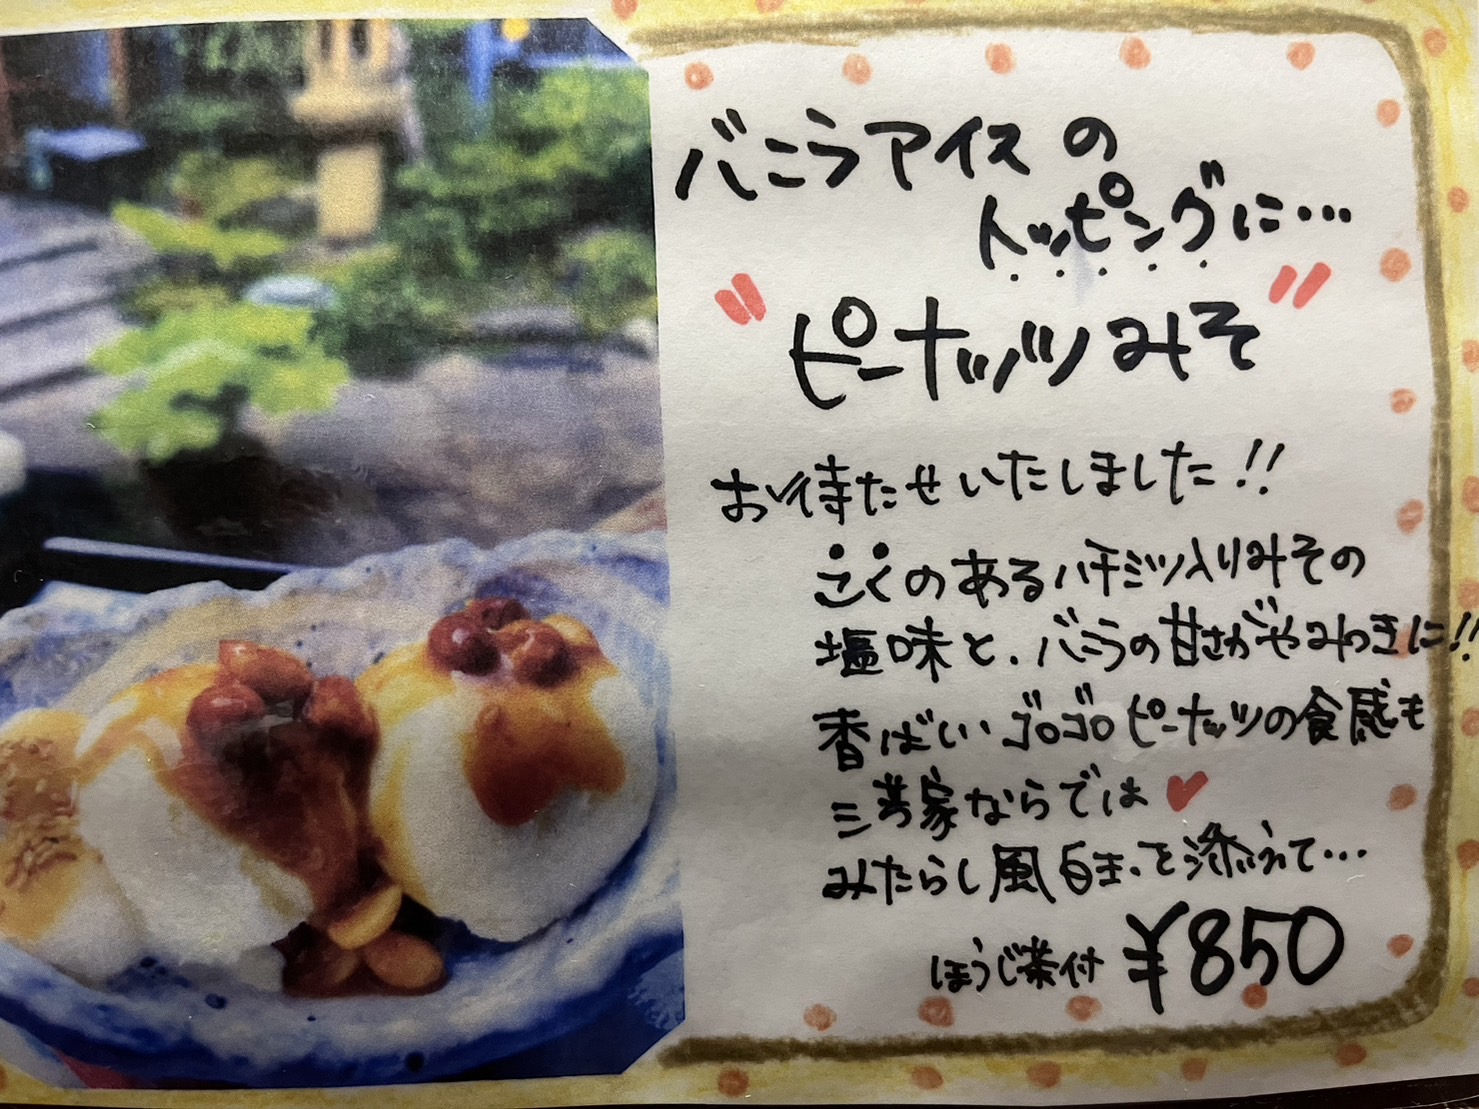 バニラアイスの
トッピングに…
"ピーナッツみそ"
お待たせいたしました!!
こくのあるハチミツ入りみその
塩味と、バニラの甘さがやみつきに!!
香ばしいゴロゴロピーナッツの食感も
三芳家ならでは♥
みたらし風白玉を添えて…
ほうじ茶付 ¥850